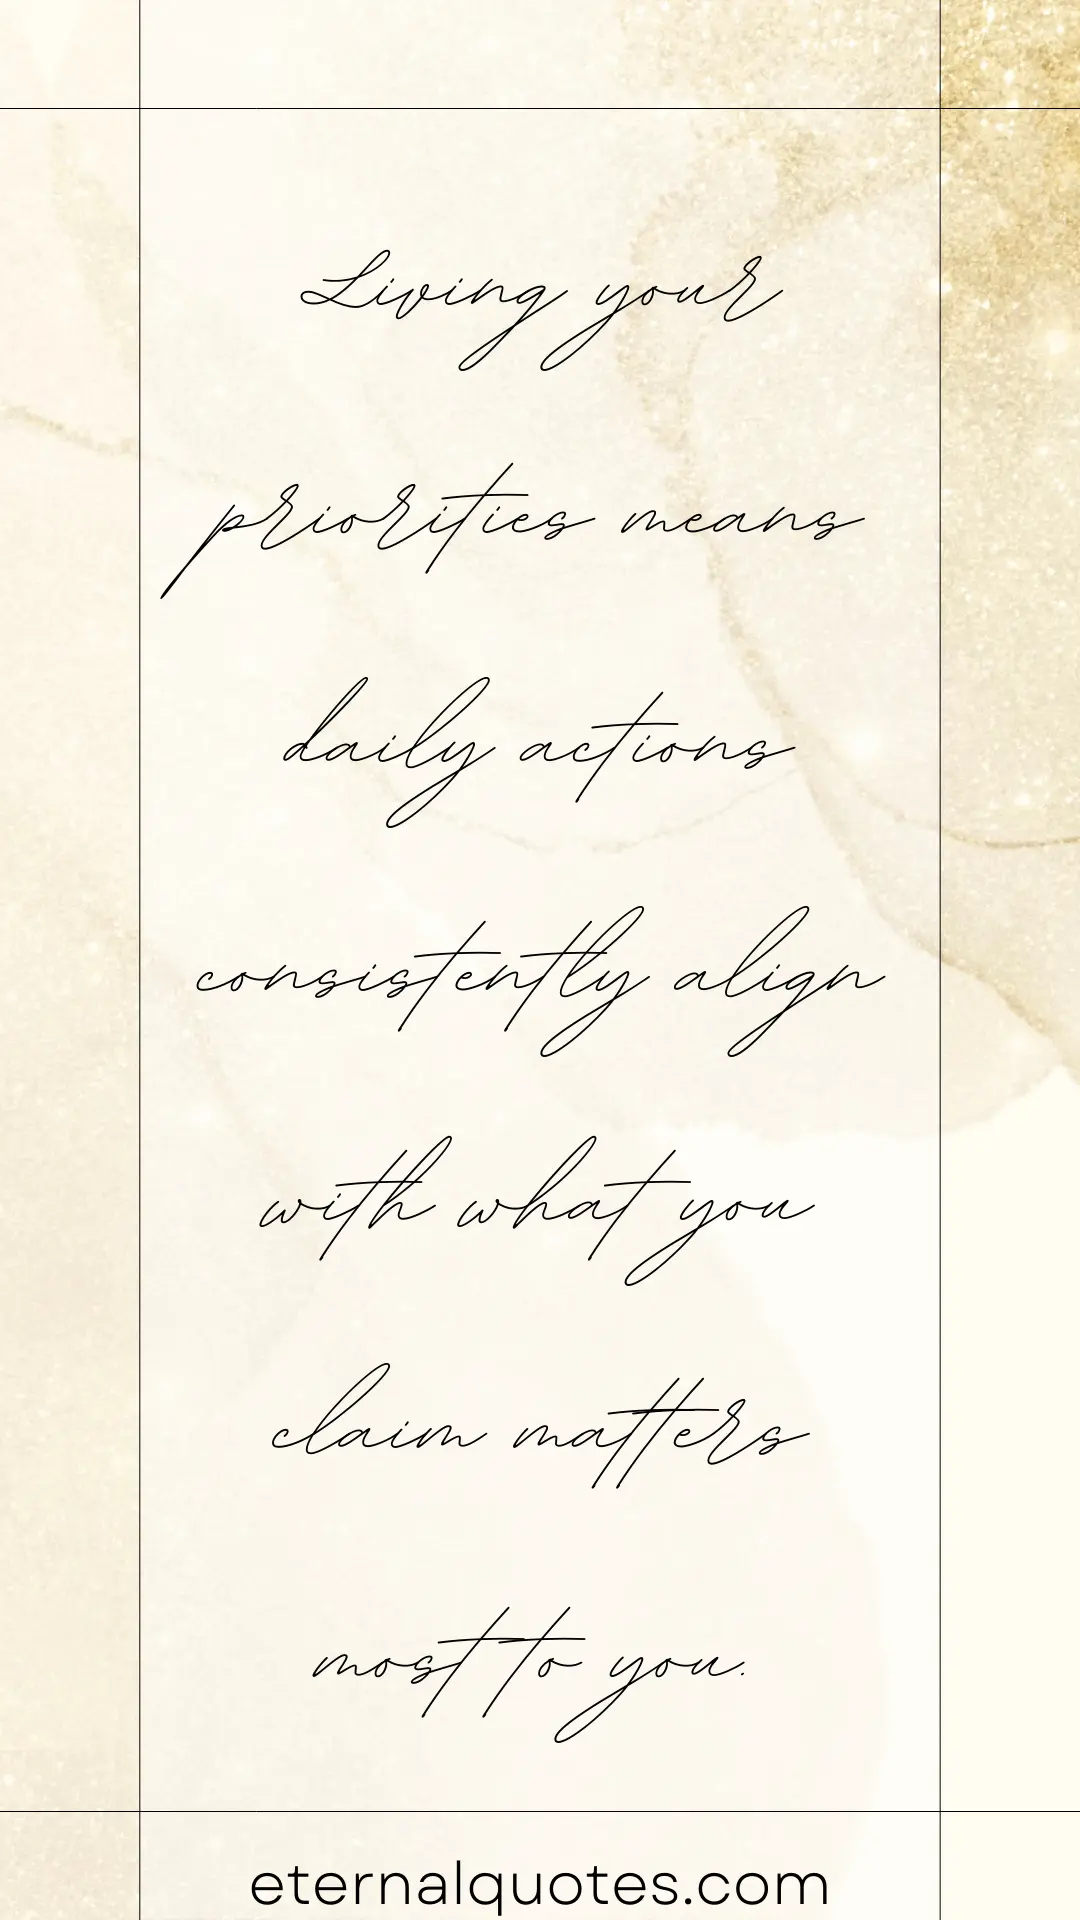 Living your
priorities means
daily actions
consistently align
with what you
claim matters
most to you.
eternalquotes.com